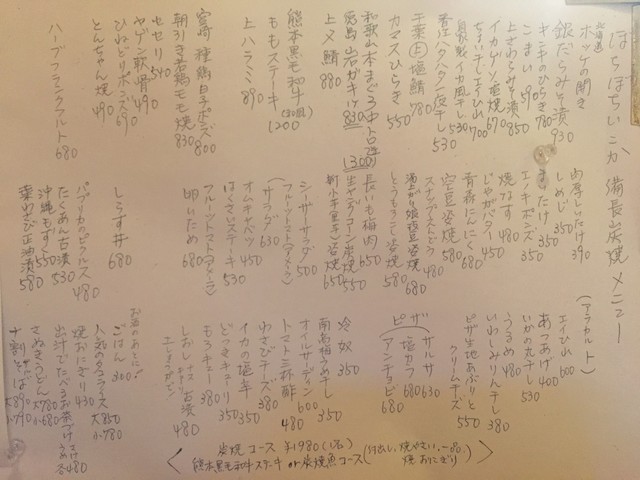 ぼちぼちいこか 備長炭焼メニュー
北海道 ホッケの開き
銀だらみそ漬 930
キンキのひらき 780
こまい 590
上さわらみそ漬 850
イカゲソ姿焼 670
ちょい干しエイひれ 700
イカ風干し 530
香住ハタハタ一夜干し 530
千葉 上塩鯖 780
カマスひらき 550
和歌山本まぐろ中トロ 1300
徳島 岩ガキ 830
上〆鯖 880
熊本黒毛和牛
ももステーキ 1200
上ハラミ 890
宮崎 種鶏白子ポンズ 800
朝引き若鶏モモ焼 830
セセリ 540
ヤゲン軟骨 490
ひねどりポンズ 690
とんちゃん焼 490
ハーブフランクフルト 680
肉厚しいたけ 390
しめじ 350
まいたけ 350
エノキポンズ 350
焼なす 480
じゃがバター 450
青森にんにく 680
空豆姿焼 580
スナップえんどう 480
湯上がり娘枝豆姿焼 680
とうもろこし姿焼 580
長いも梅肉 650
生ヤングコーン炭焼 550
新小芋皮ごと姿焼 650
シーザーサラダ 500
(フルーツトマトアメーラ)
(サラダ) 630
オムキャベツ 450
はくさいステーキ 530
フルーツトマト(アメーラ)
卵いため 680
しらす丼 680
パプリカのピクルス 480
たくあん古漬 530
沖縄もずく 550
葉わさび正油漬 580
(アラカルト)
エイひれ 600
あつあげ 400
いかの丸干し 530
うるめ 480
いわしみりん干し 380
ピザ生地あぶりと
クリームチーズ 550
ピザ
サルサ 630
塩カフ 680
アンチョビ 680
冷奴 350
南高梅あみ干し 350
オイルサーディン 600
トマト三杯酢 480
わさびチーズ 380
イカの塩辛 350
どっさキュウリ 350
もろキュー 380
しおしょ ナス キュウリ 古漬 480
お酒のあとに!
ごはん 300
人気の名ライス 大850 小780
焼おにぎり 430
出汁でたべるお茶づけ さけ うめ 各480
さぬきうどん 大780 小680
十割ざるそば 大890 小790
炭焼コース ¥1980(1名)
熊本黒毛和牛ステーキ or 炭焼魚コース (付出し、焼やさい、一品、焼おにぎり)